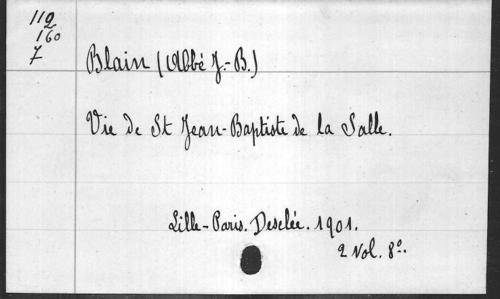 112
160
7
Blain (Abbé J.-B.)
Vie de St Jean-Baptiste de la Salle.
Lille-Paris. Desclée. 1901.
2 Vol. 8º.